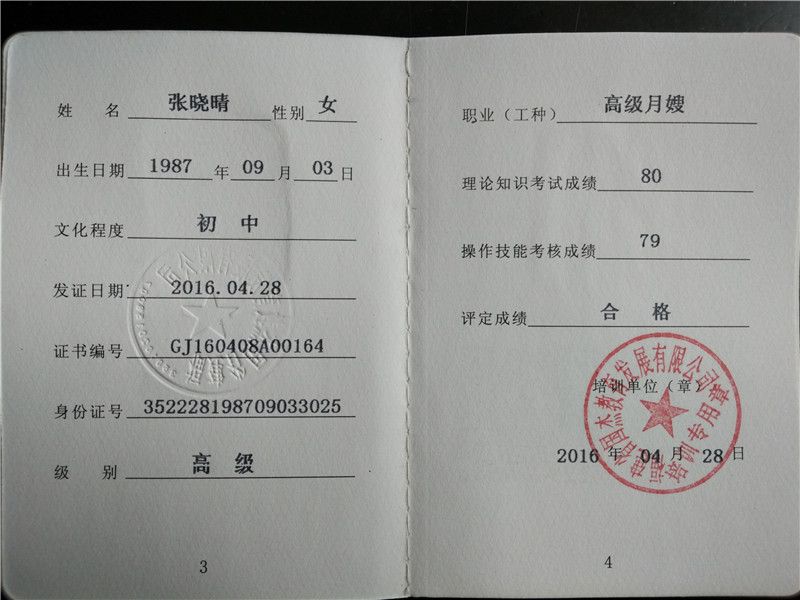 姓 名 张晓晴 性别 女
出生日期 1987 年 09 月 03 日
文化程度 初 中
发证日期 2016.04.28
证书编号 GJ160408A00164
身份证号 352228198709033025
级 别 高 级
3
职业（工种） 高级月嫂
理论知识考试成绩 80
操作技能考核成绩 79
评定成绩 合 格
培训单位（章）
2016 年 04 月 28 日
教育发展有限公司
培训专用章
4